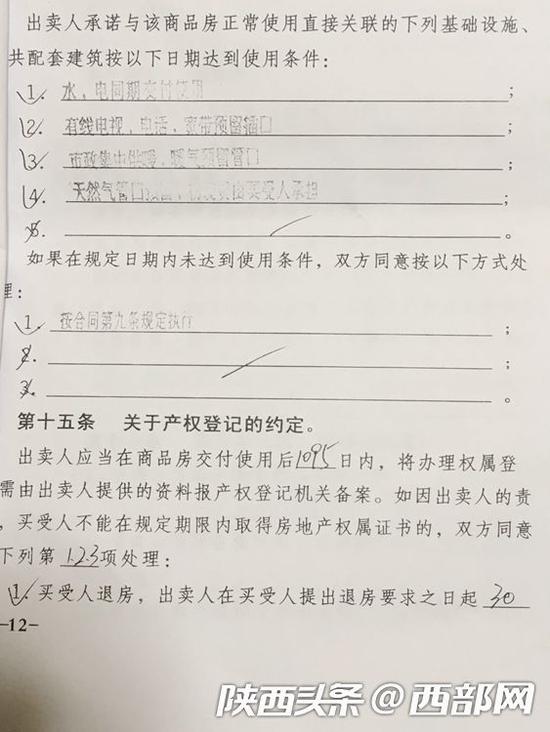 出卖人承诺与该商品房正常使用直接关联的下列基础设施、
共配套建筑按以下日期达到使用条件：
1. 水，电同期交付使用；
2. 有线电视，电话，宽带预留插口；
3. 市政集中供暖，暖气预留管口；
4. 天然气管口预留，由买受人承担；
5. 。
如果在规定日期内未达到使用条件，双方同意按以下方式处
理：
1. 按合同第九条规定执行；
2. ；
3. 。
第十五条 关于产权登记的约定。
出卖人应当在商品房交付使用后1095日内，将办理权属登
需由出卖人提供的资料报产权登记机关备案。如因出卖人的责
，买受人不能在规定期限内取得房地产权属证书的，双方同意
下列第1.2.3项处理：
1. 买受人退房，出卖人在买受人提出退房要求之日起 30
-12-
陕西头条@西部网